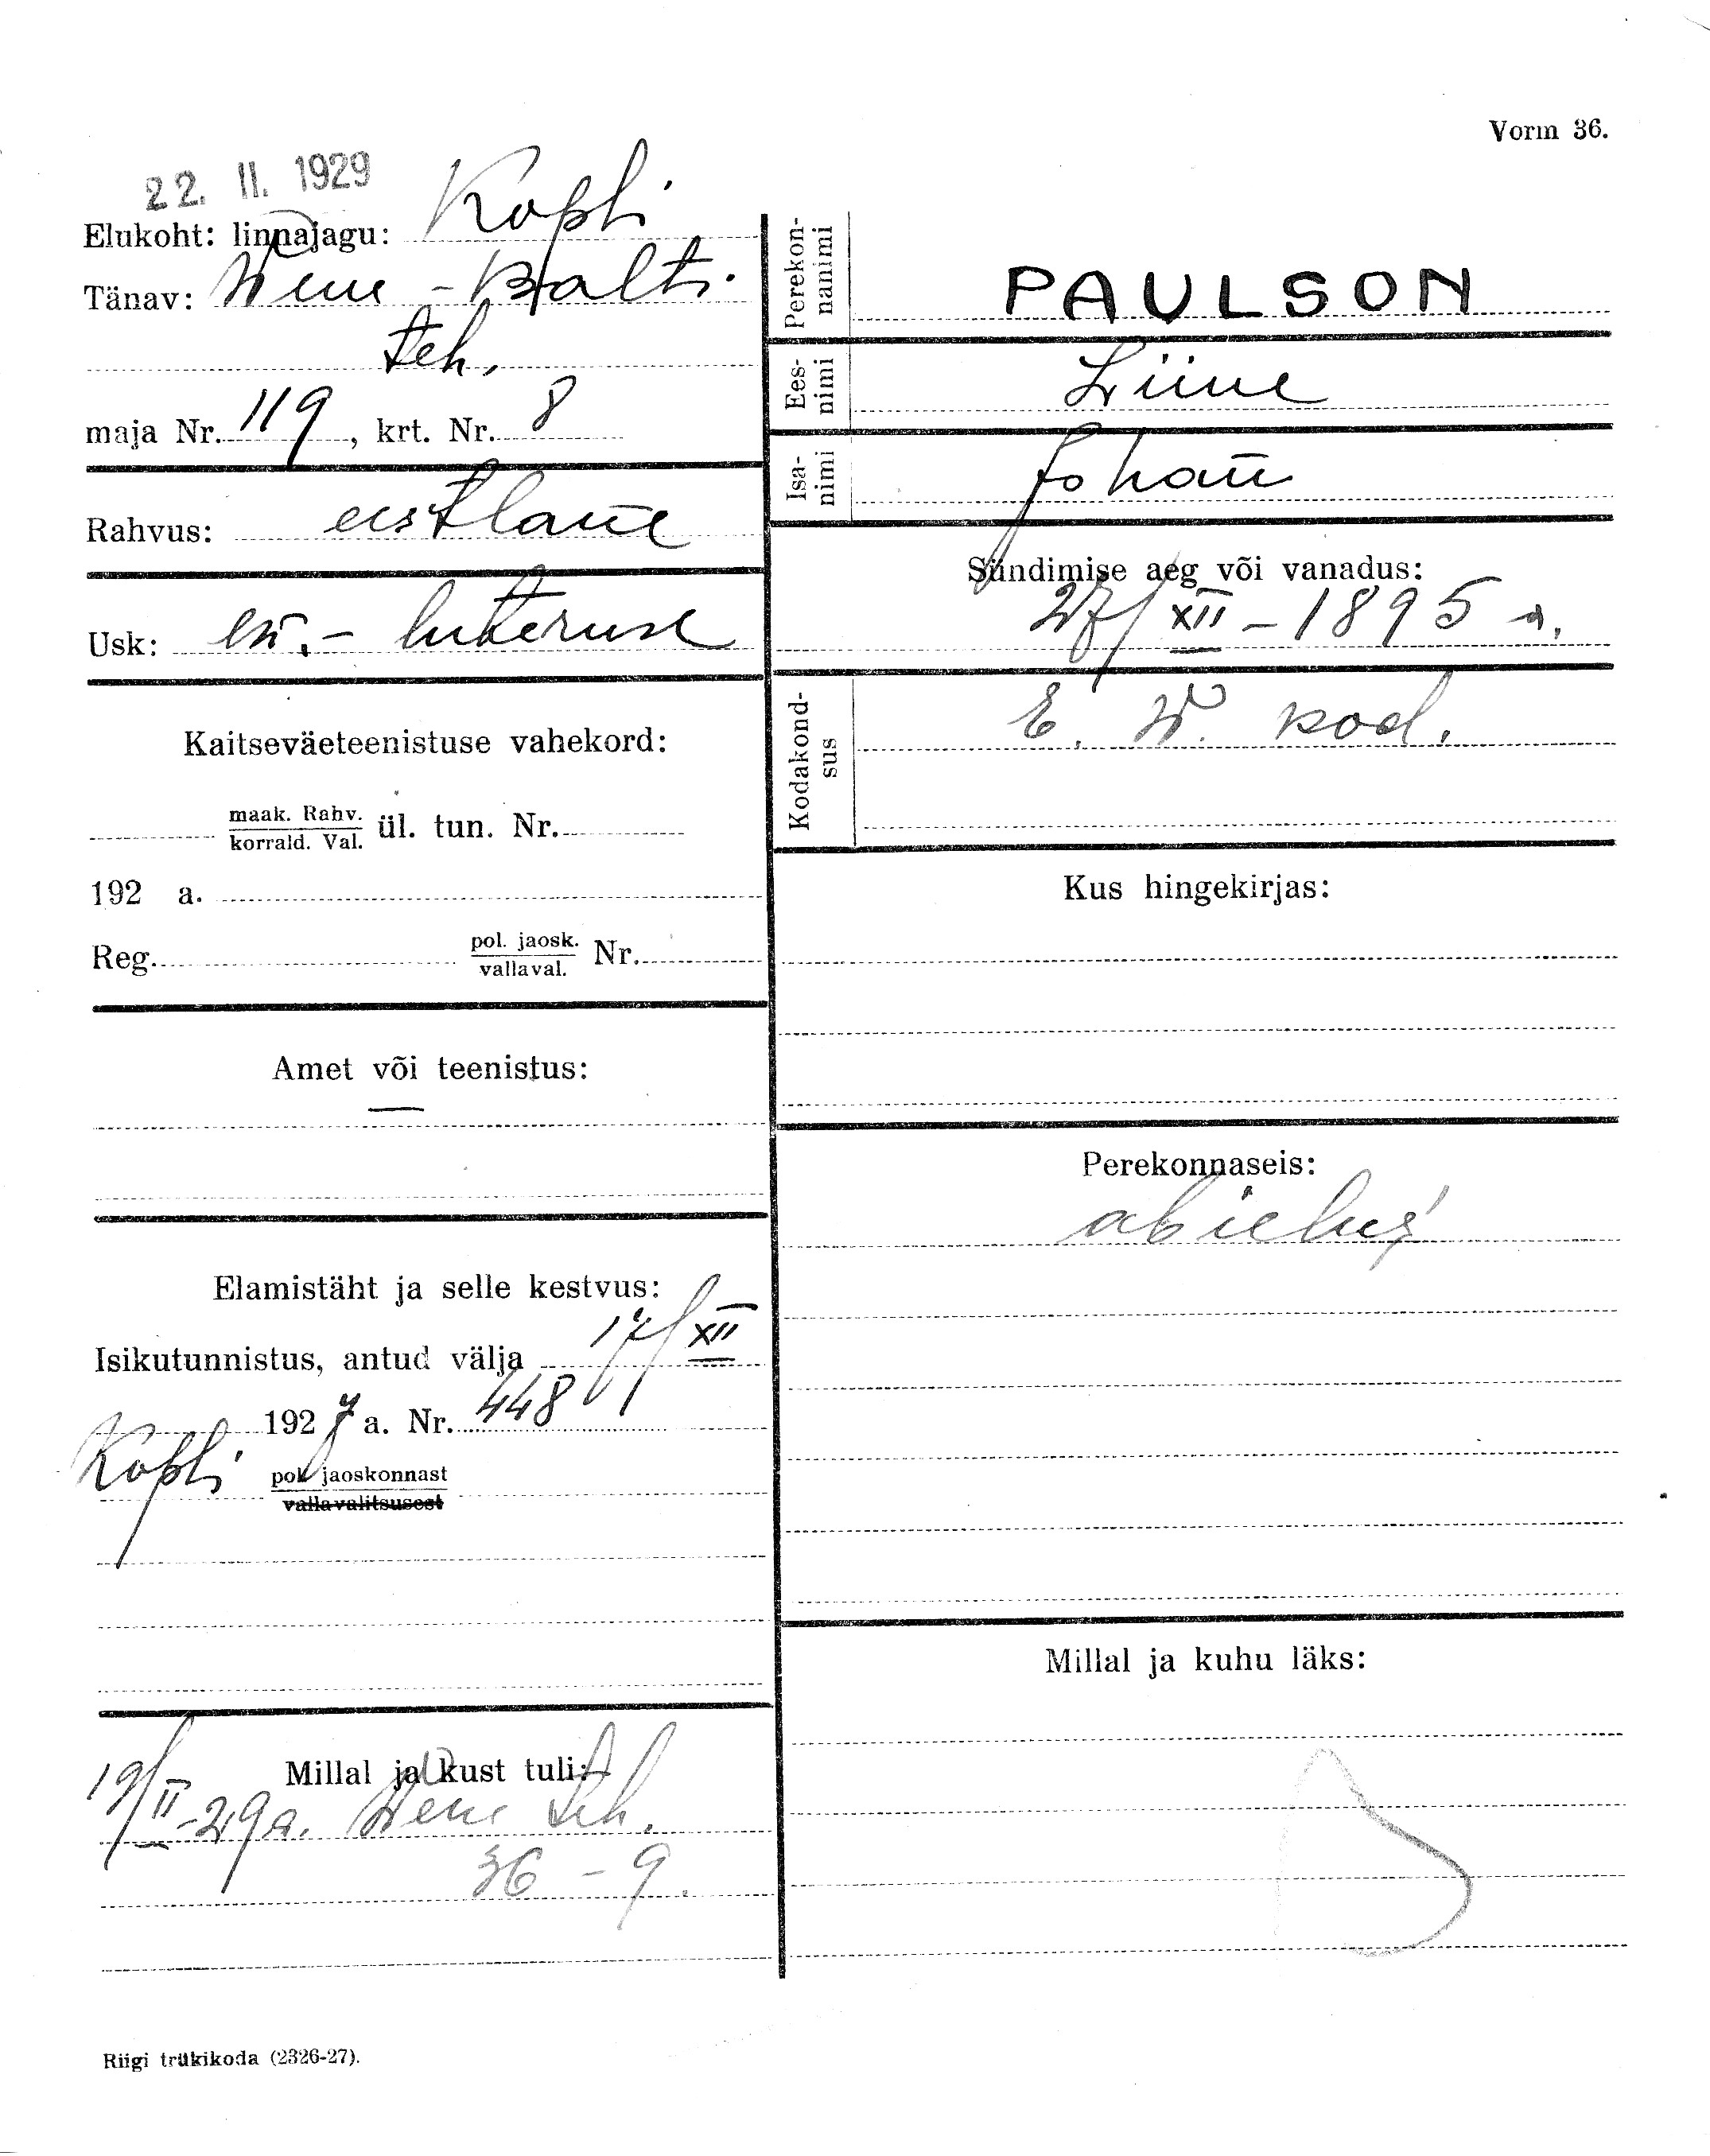 Vorm 36.
22. II. 1929
Elukoht: linnajagu: Kopli
Tänav: Wene - Balti
teh.
maja Nr. 119, krt. Nr. 8
Rahvus: eestlane
Usk: ew. - luteruse
Kaitseväeteenistuse vahekord:
maak. Rahv.
korrald. Val. ül. tun. Nr.
192 a.
Reg. pol. jaosk.
vallaval. Nr.
Amet või teenistus:
—
Elamistäht ja selle kestvus:
Isikutunnistus, antud välja 17/XII
1927 a. Nr. 448
Kopli pol. jaoskonnast
vallavalitsusest
Millal ja kust tuli:
19/II-29a. Wene teh.
36 - 9.
Perekon-
nanimi
PAULSON
Ees-
nimi
Liine
Isa-
nimi
Johan̄
Sündimise aeg või vanadus:
27/XII - 1895 a.
Kodakond-
sus
E. W. kod.
Kus hingekirjas:
Perekonnaseis:
abielus
Millal ja kuhu läks:
Riigi trükikoda (2326-27).